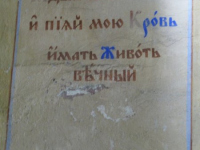 й пїѧй мою Кро́вь
и҆́мать Живо́тъ
вѣ́чный